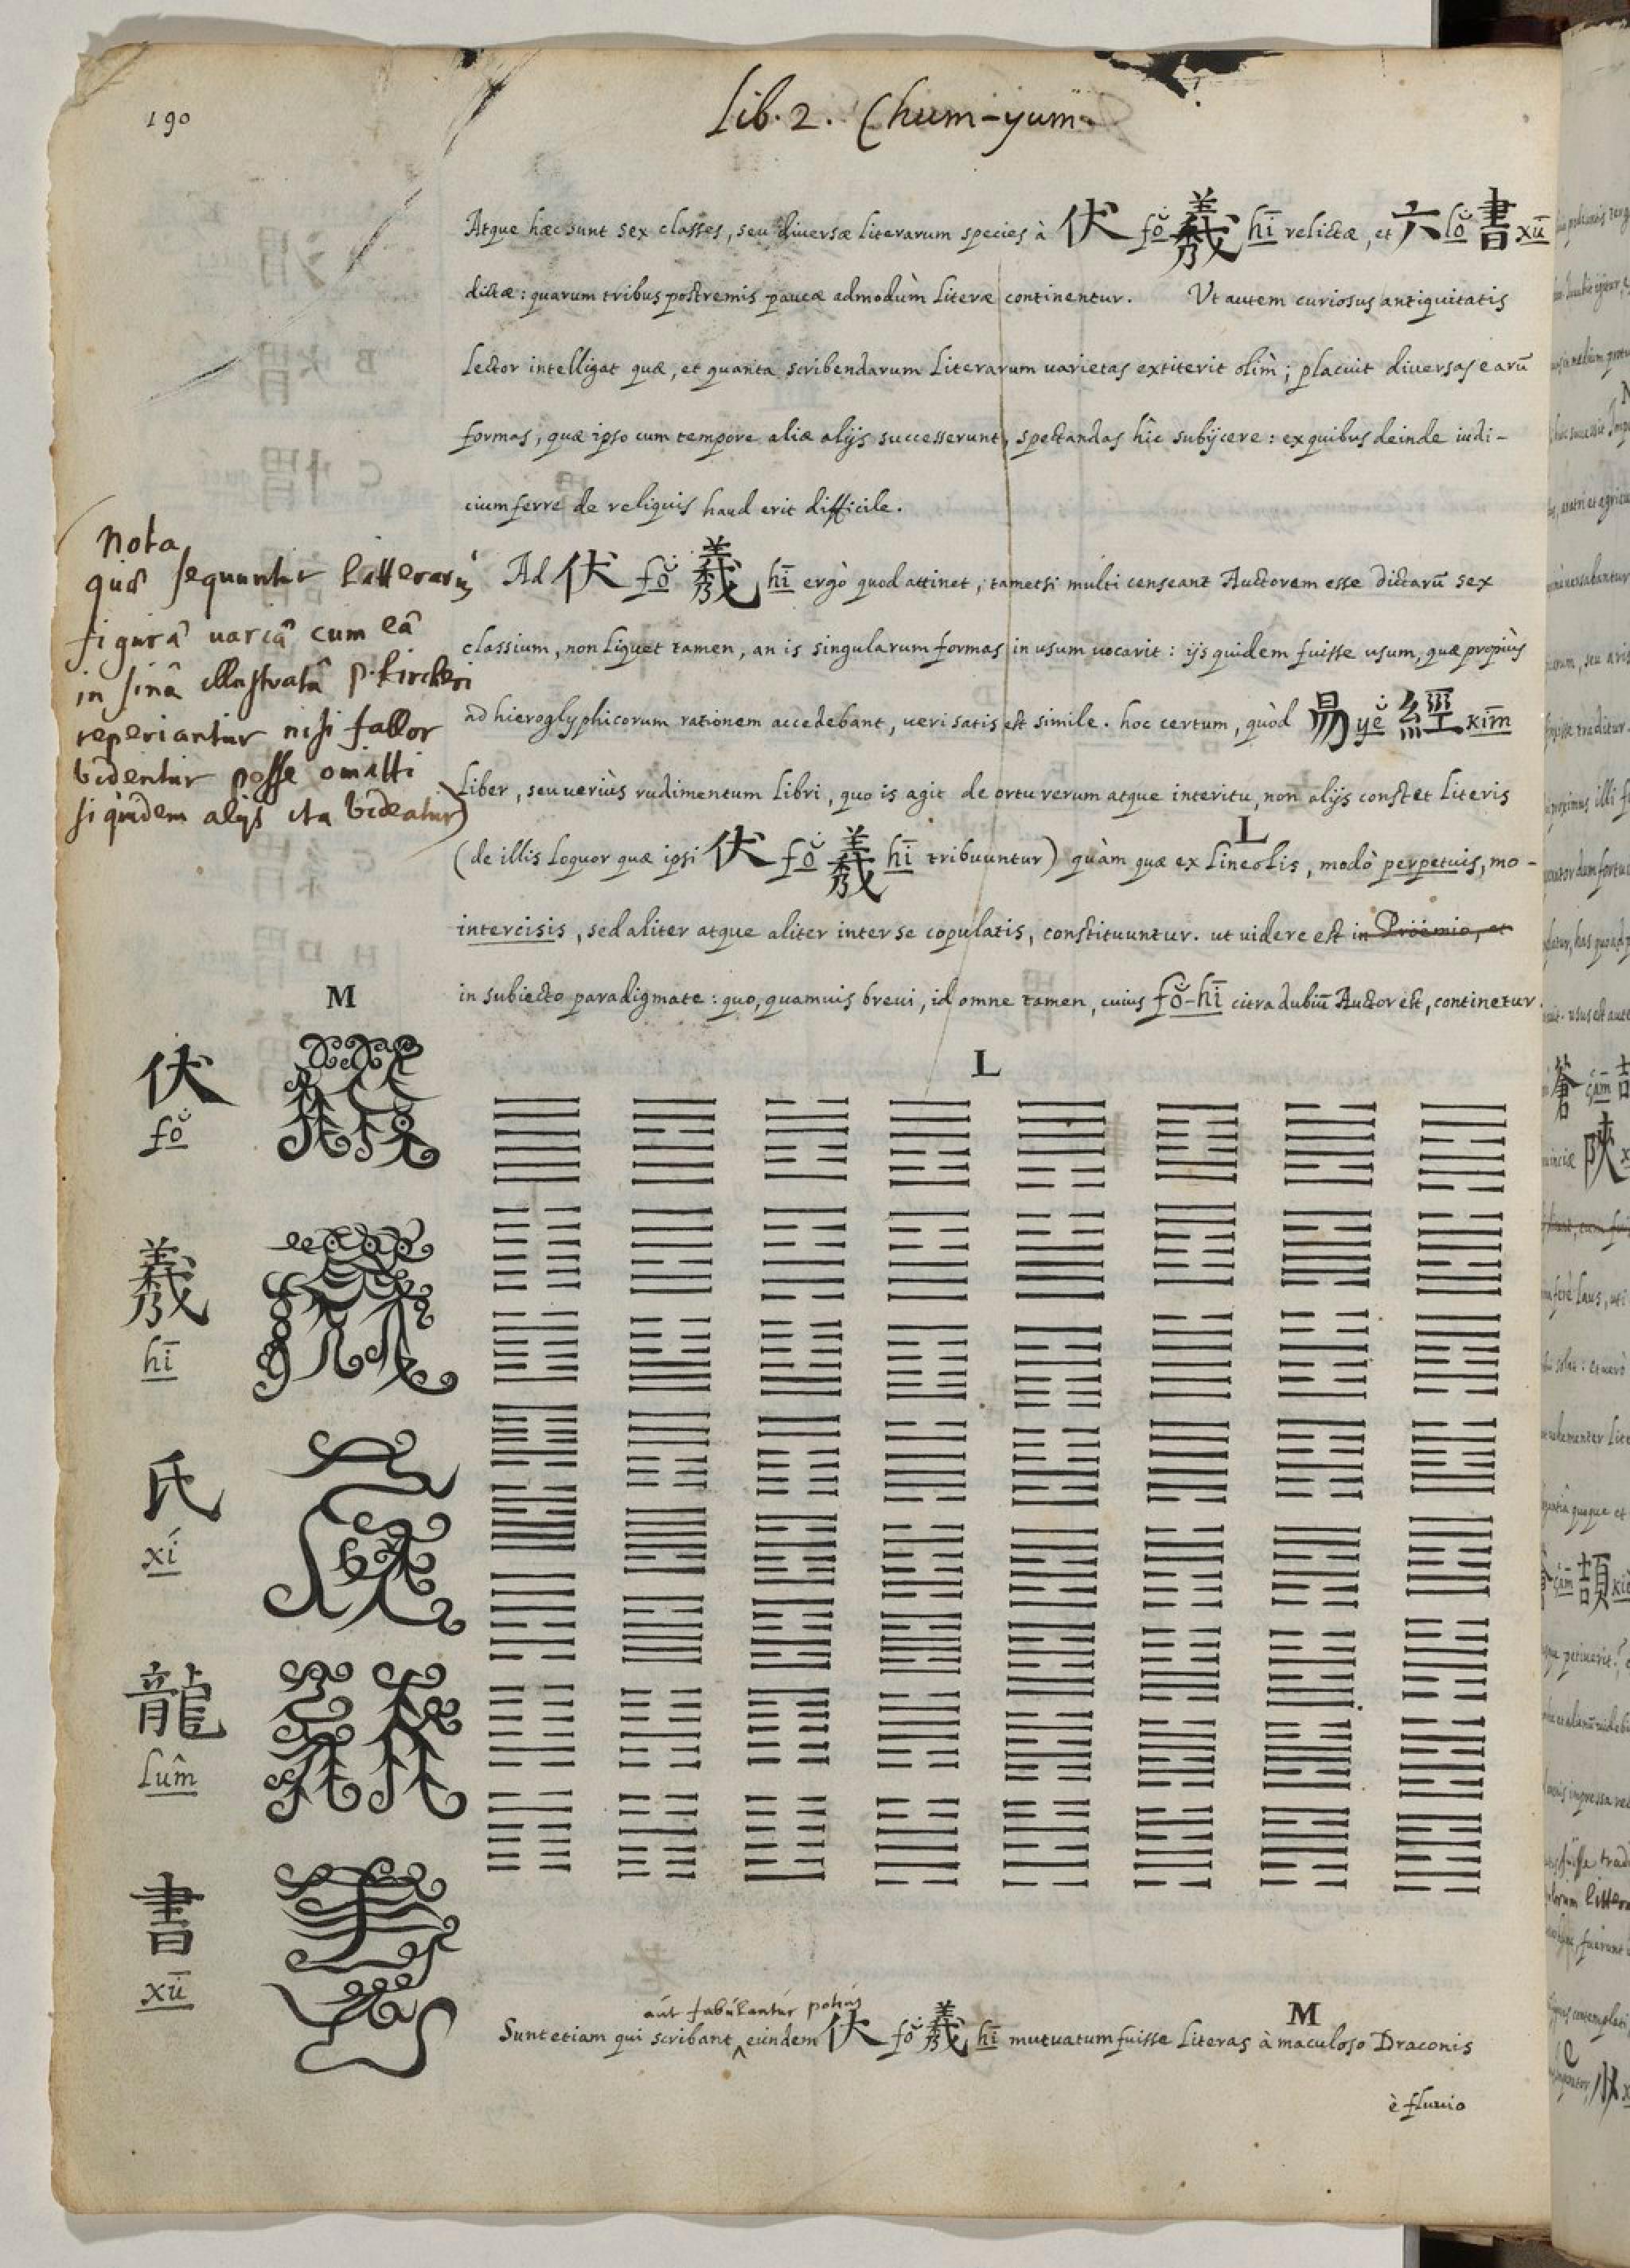 190
Lib. 2. Chum-yum.
Atque hæc sunt sex classes, seu diversæ literarum species à 伏 fŏ 羲 hī relictæ, et 六 lŏ 書 xū
dictæ: quarum tribus postremis paucæ admodùm literæ continentur. Ut autem curiosus antiquitatis
lector intelligat quæ, et quanta scribendarum literarum varietas extiterit olìm; placuit diversas earū
formas, quæ ipso cum tempore aliæ alijs successerunt, spectandas hîc subijcere: ex quibus deinde iudi-
cium ferre de reliquis haud erit difficile.
Nota
quod sequuntur litterarū
figurâ variâ cum eâ
in sinâ illustratâ P. Kircheri
reperiantur nisi fallor
videntur posse omitti
siquidem alijs ita videatur)
Ad 伏 fŏ 羲 hī ergò quod attinet, tametsi multi censeant Auctorem esse dictarū sex
classium, non liquet tamen, an is singularum formas in usum vocarit: ijs quidem fuisse usum, quæ propiùs
ad hieroglyphicorum rationem accedebant, veri satis est simile. hoc certum, quòd 易 yĕ 經 kīm
Liber, seu veriùs rudimentum Libri, quo is agit de ortu rerum atque interitu, non alijs constet literis
L
(de illis loquor quæ ipsi 伏 fŏ 羲 hī tribuuntur) quàm quæ ex lineolis, modò perpetuis, mo-
intercisis, sed aliter atque aliter inter se copulatis, constituuntur. ut videre est in Proëmio, et
in subiecto paradigmate: quo, quamvis brevi, id omne tamen, cuius fŏ-hī citra dubiū Auctor est, continetur.
M
L
伏
fŏ
羲
hī
氏
xí
龍
lûm
書
xū
aut fabulantur potius
M
Sunt etiam qui scribant, eundem 伏 fŏ 羲 hī mutuatum fuisse literas à maculoso Draconis
è fluvio